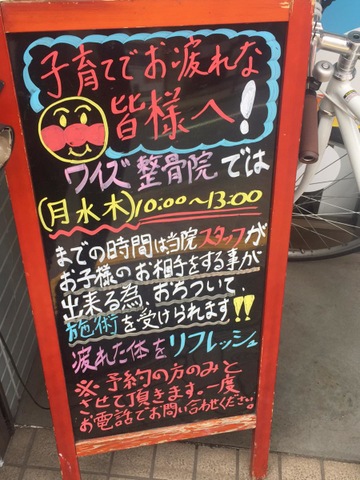 子育てでお疲れな
皆様へ!
ワイズ整骨院では
(月水木)10:00~13:00
までの時間は当院スタッフが
お子様のお相手をする事が
出来る為、おちついて、
施術を受けられます!!
疲れた体をリフレッシュ
※予約の方のみと
させて頂きます。一度
お電話でお問い合わせください。